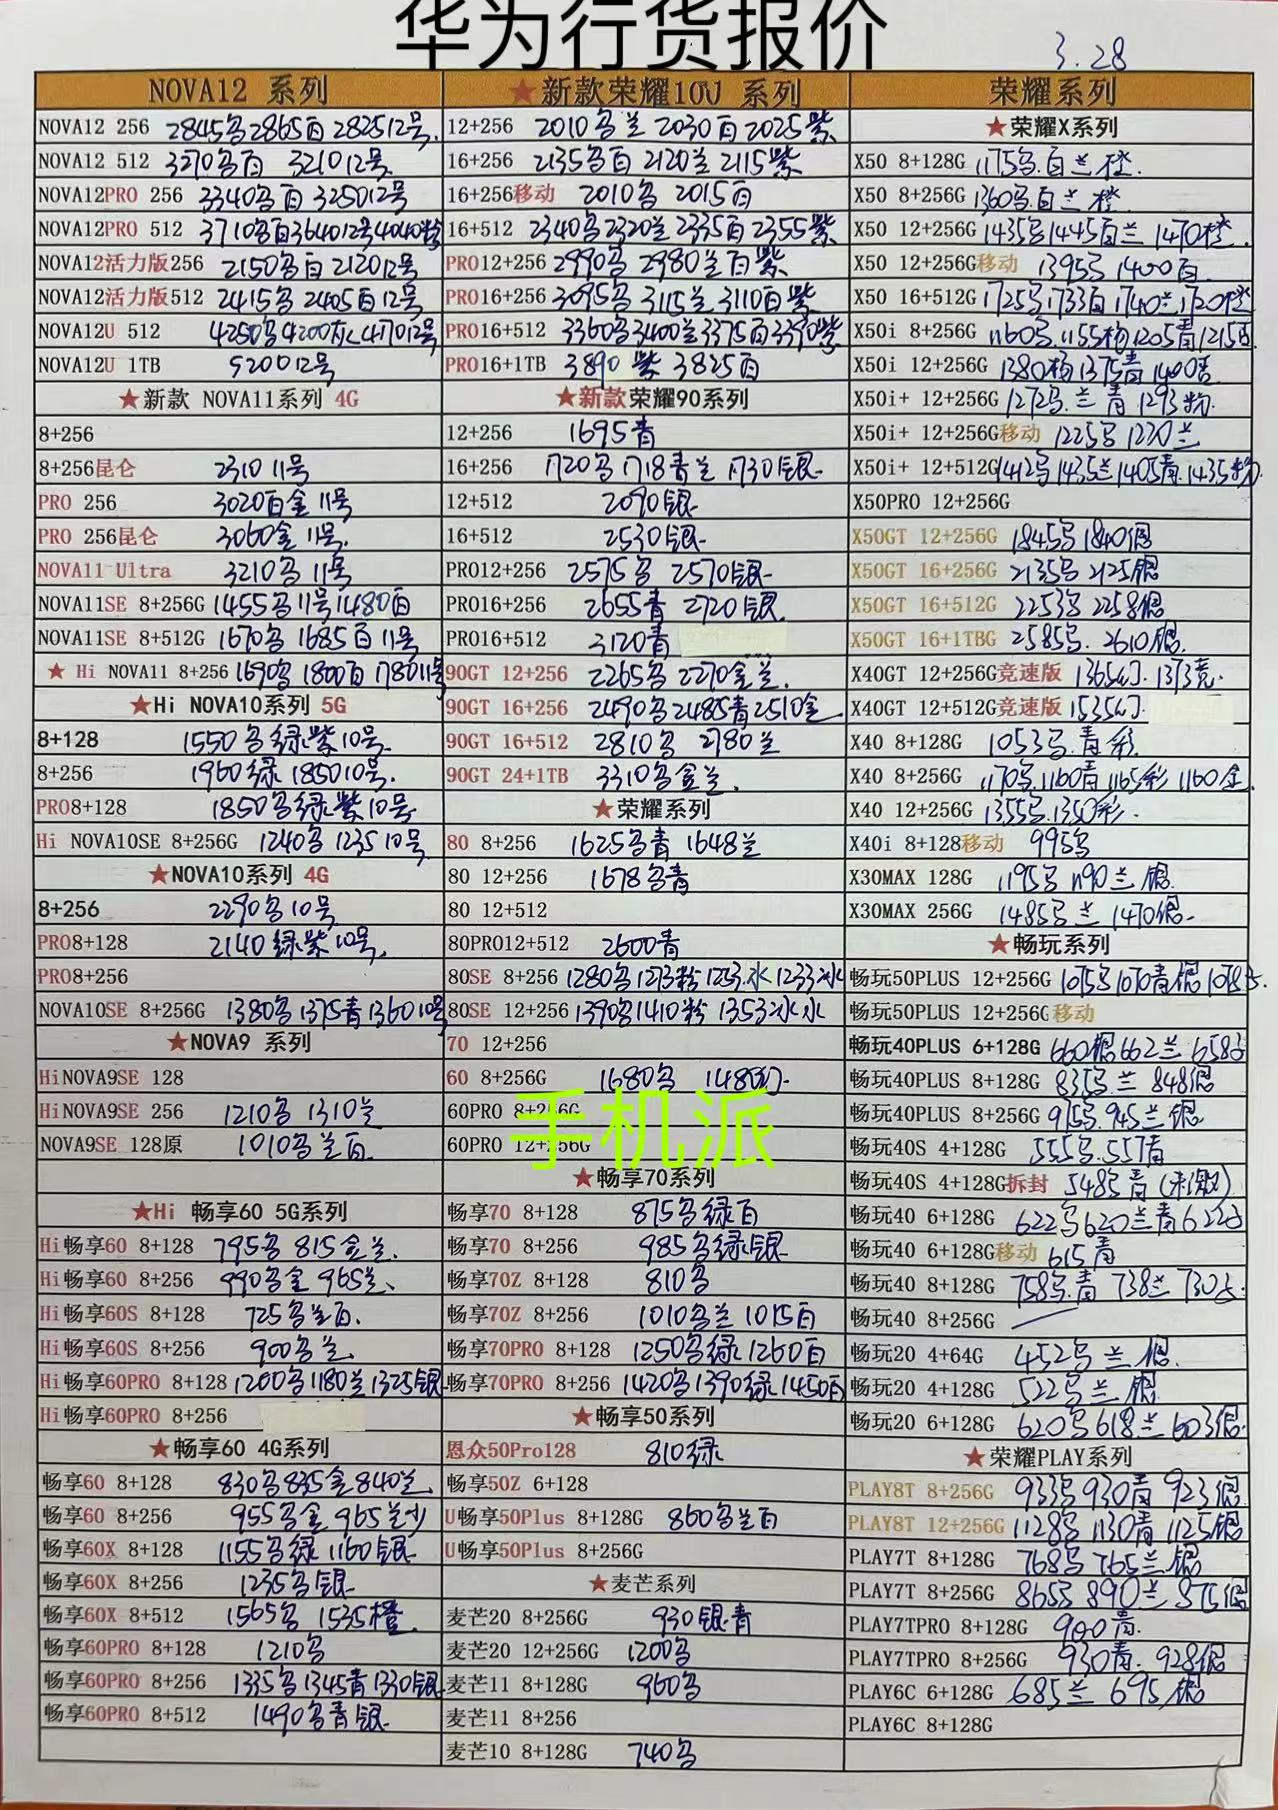 华为行货报价
3.28
NOVA12 系列
NOVA12 256 2845黑2865白282512号
NOVA12 512 3270黑白 321012号
NOVA12PRO 256 3340黑白325012号
NOVA12PRO 512 3710黑白364012号4040粉
NOVA12活力版256 2150黑白212012号
NOVA12活力版512 2415黑2405白12号
NOVA12U 512 4250黑4200灰417012号
NOVA12U 1TB 520012号
★新款 NOVA11系列 4G
8+256
8+256昆仑 2310 11号
PRO 256 3020白金11号
PRO 256昆仑 3060金11号.
NOVA11 Ultra 3210黑11号
NOVA11SE 8+256G 1455黑11号1480白
NOVA11SE 8+512G 1670黑1685白11号
★ Hi NOVA11 8+256 1690黑1800白178011号
★Hi NOVA10系列 5G
8+128 1550黑绿紫10号
8+256 1960绿185010号.
PRO8+128 1850黑绿紫10号
Hi NOVA10SE 8+256G 1240黑1235 10号
★NOVA10系列 4G
8+256 2290黑10号
PRO8+128 2140绿紫10号.
PRO8+256
NOVA10SE 8+256G 1380黑1375青136010号
★NOVA9 系列
HiNOVA9SE 128
HiNOVA9SE 256 1210黑1310兰
NOVA9SE 128原 1010黑兰白
★Hi 畅享60 5G系列
Hi畅享60 8+128 795黑815金兰.
Hi畅享60 8+256 990黑金965兰、
Hi畅享60S 8+128 725黑兰白.
Hi畅享60S 8+256 900黑兰、
Hi畅享60PRO 8+128 1200黑1180兰1325银
Hi畅享60PRO 8+256
★畅享60 4G系列
畅享60 8+128 830黑835金840兰
畅享60 8+256 955黑金965兰少
畅享60X 8+128 1155黑绿1160银
畅享60X 8+256 1235黑银
畅享60X 8+512 1565黑1535橙
畅享60PRO 8+128 1210黑
畅享60PRO 8+256 1335黑1345青1330银
畅享60PRO 8+512 1490黑青银
★新款荣耀100 系列
12+256 2010黑兰2030白2025紫
16+256 2135黑白2120兰2115紫
16+256移动 2010黑 2015白
16+512 2340黑2320兰2335白2355紫
PRO12+256 2990黑2980兰白紫
PRO16+256 3095黑3115兰3110白紫
PRO16+512 3360黑3400兰3375白3390紫
PRO16+1TB 3890紫3825白
★新款荣耀90系列
12+256 1695青
16+256 1720黑1718青兰1730银
12+512 2090银
16+512 2530银
PRO12+256 2575黑2570银
PRO16+256 2655青2720银
PRO16+512 3120青
90GT 12+256 2265黑2270金兰.
90GT 16+256 2490黑2485青2510金
90GT 16+512 2810黑2780兰
90GT 24+1TB 3310黑金兰
★荣耀系列
80 8+256 1625黑青1648兰
80 12+256 1678黑青
80 12+512
80PRO12+512 2600青
80SE 8+256 1280黑1273粉1253水1233冰
80SE 12+256 1390黑1410粉1353冰水
70 12+256
60 8+256G 1680黑 1480幻
60PRO 8+256G
60PRO 12+256G
手机派
★畅享70系列
畅享70 8+128 875黑绿白
畅享70 8+256 985黑绿银
畅享70Z 8+128 810黑
畅享70Z 8+256 1010黑兰1015白
畅享70PRO 8+128 1250黑绿1260白
畅享70PRO 8+256 1420黑1390绿1450白
★畅享50系列
恩众50Pro128 810绿
畅享50Z 6+128
U畅享50Plus 8+128G 860黑兰白
U畅享50Plus 8+256G
★麦芒系列
麦芒20 8+256G 930银青
麦芒20 12+256G 1200黑
麦芒11 8+128G 960黑
麦芒11 8+256
麦芒10 8+128G 740黑
荣耀系列
★荣耀X系列
X50 8+128G 1175黑.白兰橙.
X50 8+256G 1360黑.白兰橙
X50 12+256G 1435黑1445白兰1470橙.
X50 12+256G移动 1395黑1400白.
X50 16+512G 1725黑1733白1740兰1720橙
X50i 8+256G 1160黑.1155杨1205青1215白
X50i 12+256G 1380杨1375青1400白
X50i+ 12+256G 1272黑.兰青1293粉.
X50i+ 12+256G移动 1225黑1230兰
X50i+ 12+512G 1412黑1435兰1405青.1435粉
X50PRO 12+256G
X50GT 12+256G 1845黑1840银
X50GT 16+256G 2135黑2125银
X50GT 16+512G 2253黑2258银
X50GT 16+1TBG 2585黑.2610银
X40GT 12+256G竞速版 1365幻.1373竞.
X40GT 12+512G竞速版 1535幻.
X40 8+128G 1053黑.青彩
X40 8+256G 1170黑.1160青1165彩1160金
X40 12+256G 1355黑.1350彩.
X40i 8+128移动 995黑
X30MAX 128G 1195黑1190兰银
X30MAX 256G 1485黑兰1470银
★畅玩系列
畅玩50PLUS 12+256G 1075黑1070青银1078
畅玩50PLUS 12+256G移动
畅玩40PLUS 6+128G 660银662兰658
畅玩40PLUS 8+128G 835黑.兰848银
畅玩40PLUS 8+256G 975黑.945兰银
畅玩40S 4+128G 555黑.557青
畅玩40S 4+128G拆封 548青(未激)
畅玩40 6+128G 622黑620兰青622
畅玩40 6+128G移动 615青
畅玩40 8+128G 758黑.青738兰730
畅玩40 8+256G
畅玩20 4+64G 452黑兰银.
畅玩20 4+128G 522黑兰银
畅玩20 6+128G 620黑618兰603银
★荣耀PLAY系列
PLAY8T 8+256G 933黑930青923银
PLAY8T 12+256G 1128黑1130青1125银
PLAY7T 8+128G 768黑765兰银
PLAY7T 8+256G 865黑890兰875银
PLAY7TPRO 8+128G 900青.
PLAY7TPRO 8+256G 930青.928银
PLAY6C 6+128G 685兰695银
PLAY6C 8+128G